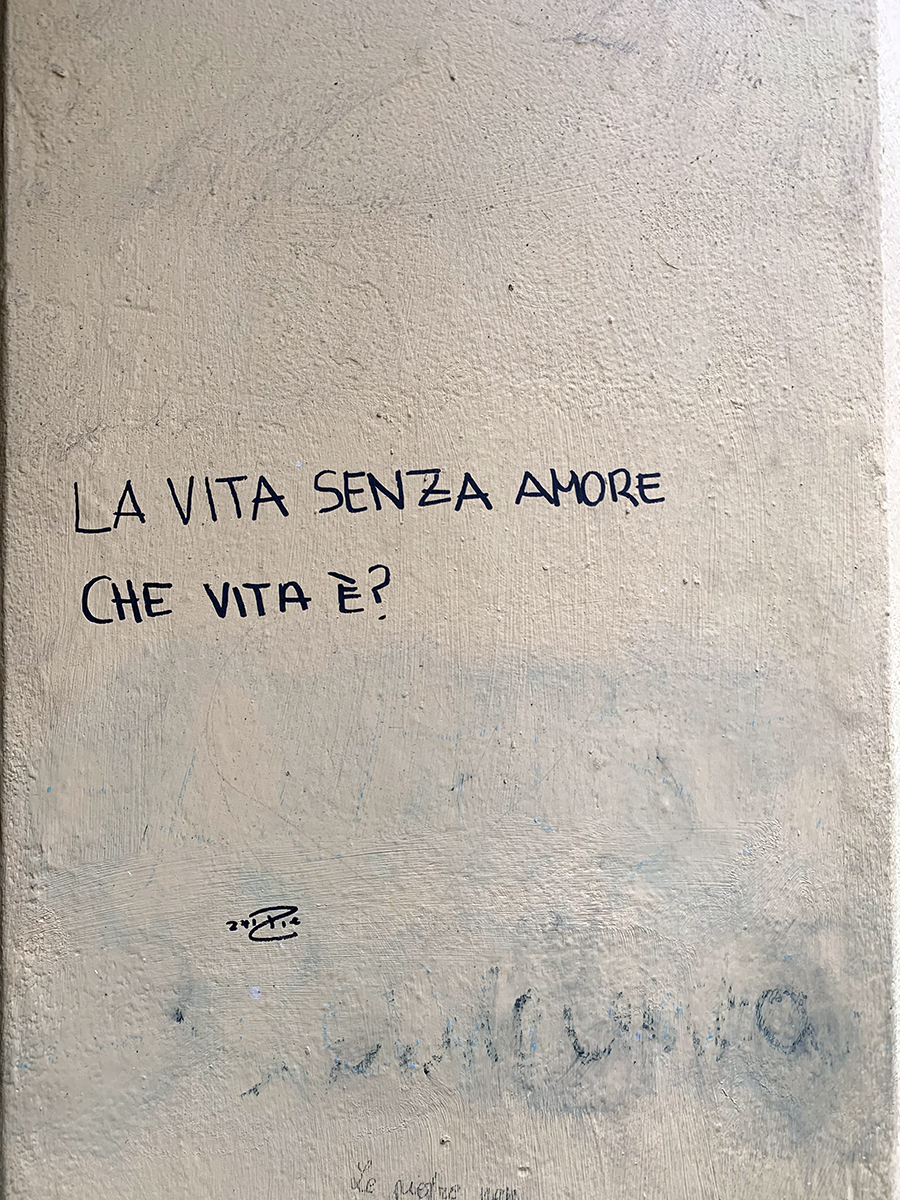 LA VITA SENZA AMORE
CHE VITA È?
Le pietre non